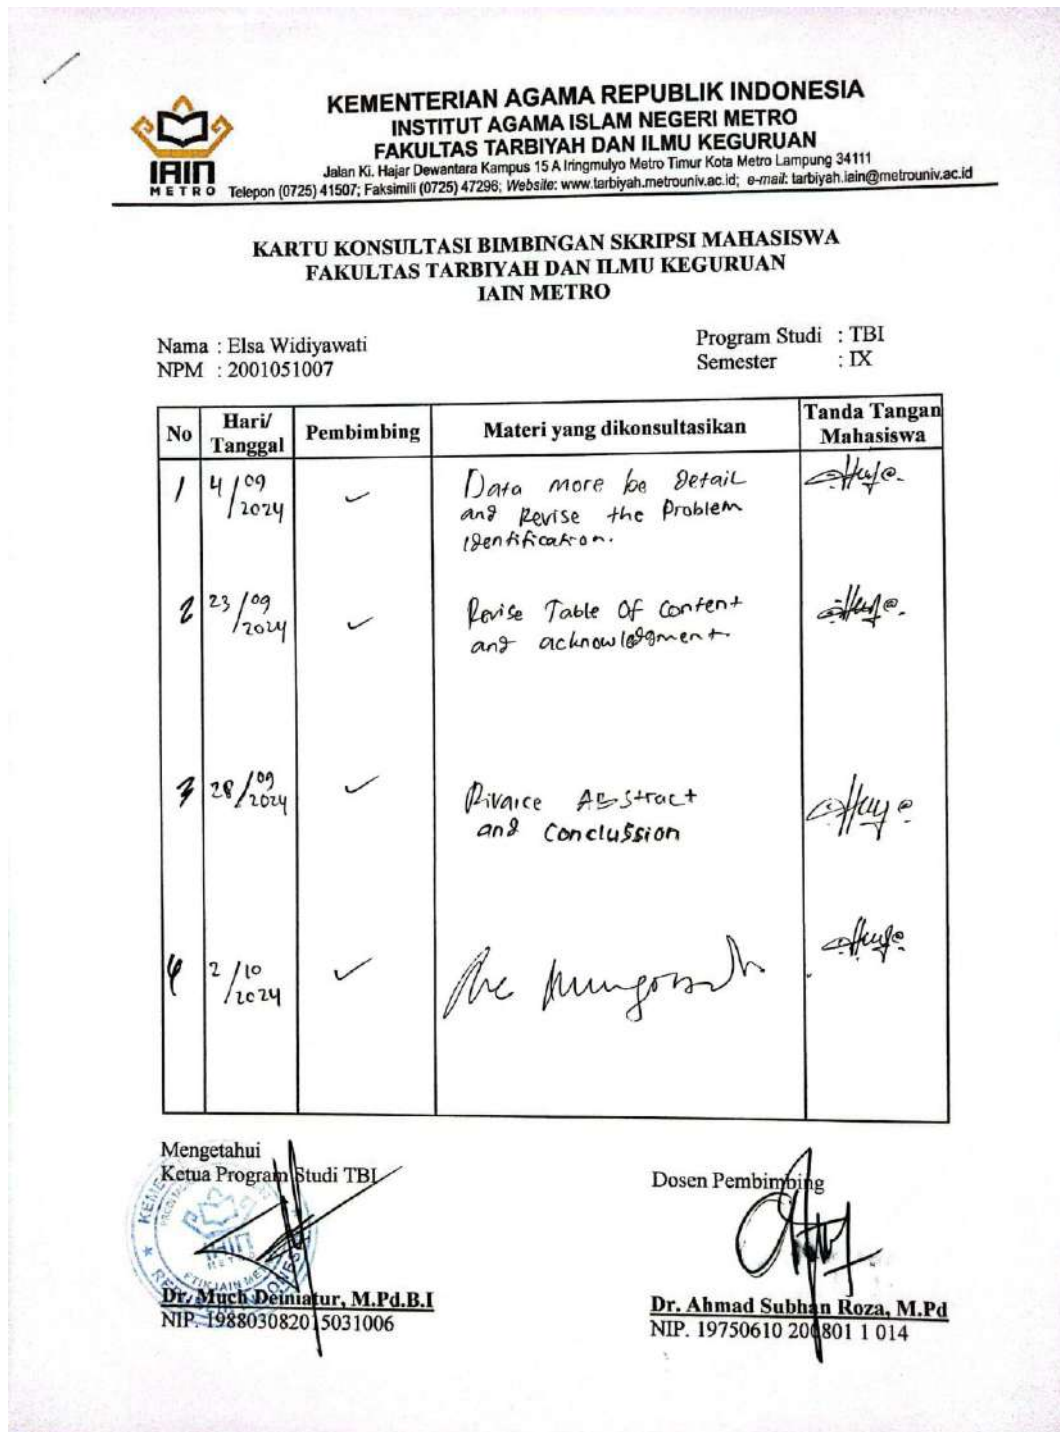 KEMENTERIAN AGAMA REPUBLIK INDONESIA
INSTITUT AGAMA ISLAM NEGERI METRO
FAKULTAS TARBIYAH DAN ILMU KEGURUAN
Jalan Ki. Hajar Dewantara Kampus 15 A Iringmulyo Metro Timur Kota Metro Lampung 34111
Telepon (0725) 41507; Faksimili (0725) 47296; Website: www.tarbiyah.metrouniv.ac.id; e-mail: tarbiyah.iain@metrouniv.ac.id
IAIN
METRO
KARTU KONSULTASI BIMBINGAN SKRIPSI MAHASISWA
FAKULTAS TARBIYAH DAN ILMU KEGURUAN
IAIN METRO
Nama : Elsa Widiyawati
NPM : 2001051007
Program Studi : TBI
Semester : IX
No Hari/ Tanggal Pembimbing Materi yang dikonsultasikan Tanda Tangan Mahasiswa
1 4/09/2024 ✓ Data more be Detail
and Revise the Problem
identification.
2 23/09/2024 ✓ Revise Table Of Content
and acknowledgment
3 28/09/2024 ✓ Abstract
and Conclussion
4 2/10/2024 ✓
Mengetahui
Ketua Program Studi TBI
Dosen Pembimbing
IAIN
METRO
Dr. Much Deiniatur, M.Pd.B.I
NIP. 198803082015031006
Dr. Ahmad Subhan Roza, M.Pd
NIP. 19750610 200801 1 014